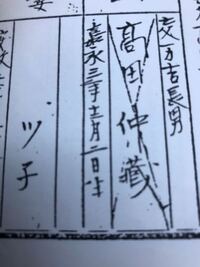 亡父万吉長男
髙田仲藏
嘉永三年十二月二日生
ツ子